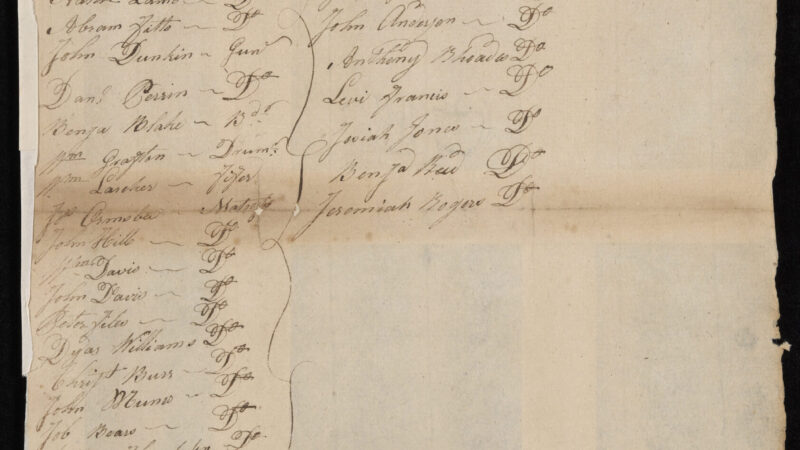 Abram Fitts ~ Do
John Dunkin ~ Gunr
Danl Perrin ~ Do
Benja Blake ~ Bdr
Wm Grafton ~ Drumr
Wm Larcher ~ Fifer
Ormsbee ~ Matross
John Hill ~ Do
Wm Davis ~ Do
John Davis ~ Do
Peter Do
Dyar Williams Do
Christ Burr ~ Do
John Munro ~ Do
Job Bears ~ Do
Do
John Anderson ~ Do
Anthony Rhoades Do
Levi Francis ~ Do
Josiah Jones ~ Do
Benja Reid Do
Jeremiah Rogers Do